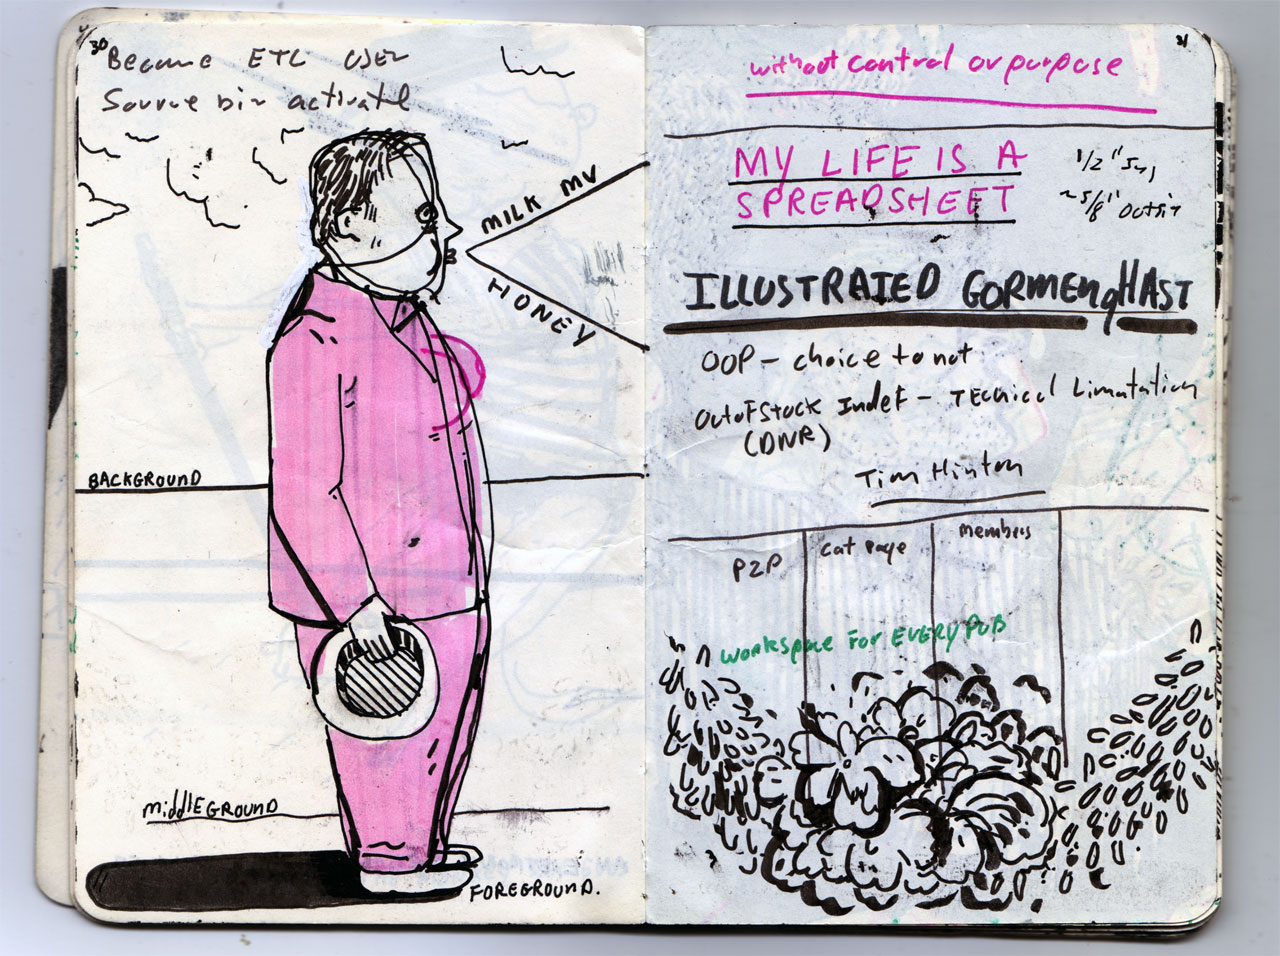 30
Became ETL user
Source bin activate
MILK MV
HONEY
BACKGROUND
MiddlEGROUND
FOREGROUND.
31
without control or purpose
MY LIFE IS A
SPREADSHEET
1/2"
~5/8"
ILLUSTRATED GORMENgHAST
OOP - choice to not
OutoFStock Indef - TEchical Limatation
(DNR)
Tim Hinton
P2P
cat page
members
workspace For EVERY PUB